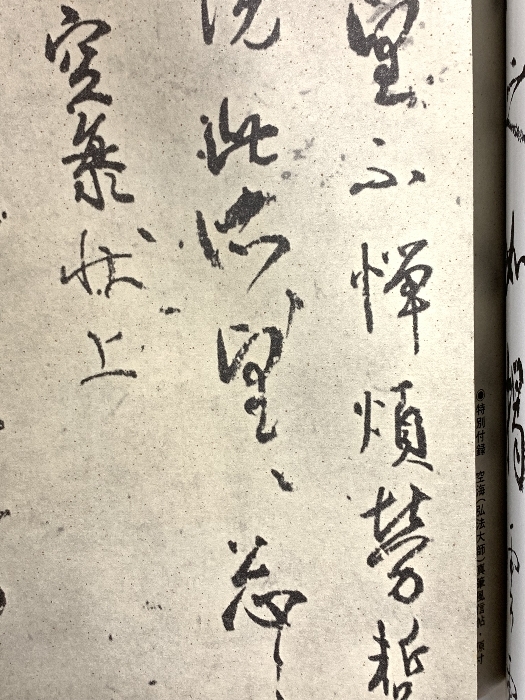 望不憚煩勞蹔
院此所々望々忩
空海状上
◉特別付録 空海(弘法大師)真筆風信帖・原寸